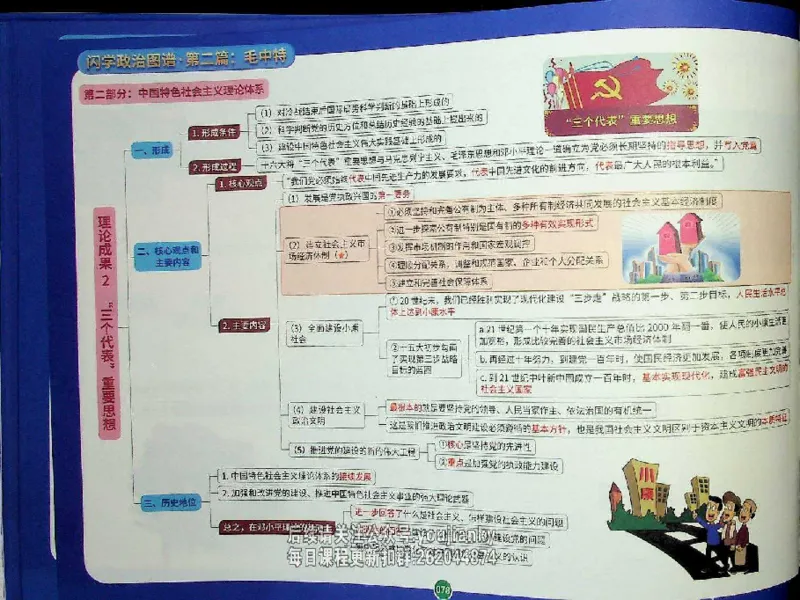 闪学政治图谱·第二篇：毛中特
第二部分：中国特色社会主义理论体系
“三个代表”重要思想
理论成果 2 “三个代表”重要思想
一、形成
1. 形成条件
（1）对冷战结束后国际局势科学判断的基础上形成的
（2）科学判断党的历史方位和总结历史经验的基础上提出来的
（3）建设中国特色社会主义伟大实践基础上形成的
2. 形成过程
十六大将“三个代表”重要思想与马克思列宁主义、毛泽东思想和邓小平理论一道确立为党必须长期坚持的指导思想，并写入党章
二、核心观点和
主要内容
1. 核心观点
“我们党必须始终代表中国先进生产力的发展要求，代表中国先进文化的前进方向，代表最广大人民的根本利益。”
2. 主要内容
（1）发展是党执政兴国的第一要务
（2）建立社会主义市
场经济体制
①必须坚持和完善公有制为主体、多种所有制经济共同发展的社会主义基本经济制度
②进一步探索公有制特别是国有制的多种有效实现形式
③发挥市场机制的作用和国家宏观调控
④理顺分配关系，调整和规范国家、企业和个人分配关系
⑤建立和完善社会保障体系
（3）全面建设小康
社会
①20 世纪末，我们已经胜利实现了现代化建设“三步走”战略的第一步、第二步目标，人民生活水平总
体上达到小康水平
②十五大初步勾画
了实现第三步战略
目标的蓝图
a. 21 世纪第一个十年实现国民生产总值比 2000 年翻一番，使人民的小康生活更
加宽裕，形成比较完善的社会主义市场经济体制
b. 再经过十年努力，到建党一百年时，使国民经济更加发展，各项制度更加完善
c. 到 21 世纪中叶新中国成立一百年时，基本实现现代化，建成富强民主文明的
社会主义国家
（4）建设社会主义
政治文明
最根本的就是要坚持党的领导、人民当家作主、依法治国的有机统一
这是我们推进政治文明建设必须遵循的基本方针，也是我国社会主义政治文明区别于资本主义政治文明的本质特征
（5）推进党的建设的新的伟大工程
①核心是坚持党的先进性
②重点是加强党的执政能力建设
小康
三、历史地位
1. 中国特色社会主义理论体系的接续发展
2. 加强和改进党的建设、推进中国特色社会主义事业的强大理论武器
总之，在邓小平理论的基础上
进一步回答了什么是社会主义、怎样建设社会主义的问题
建设党的问题
义的认识
后续请关注公众号
每日课程更新扣群:262044874
078